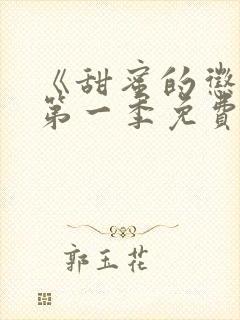 《甜蜜的惩
第一季免費
郭玉花